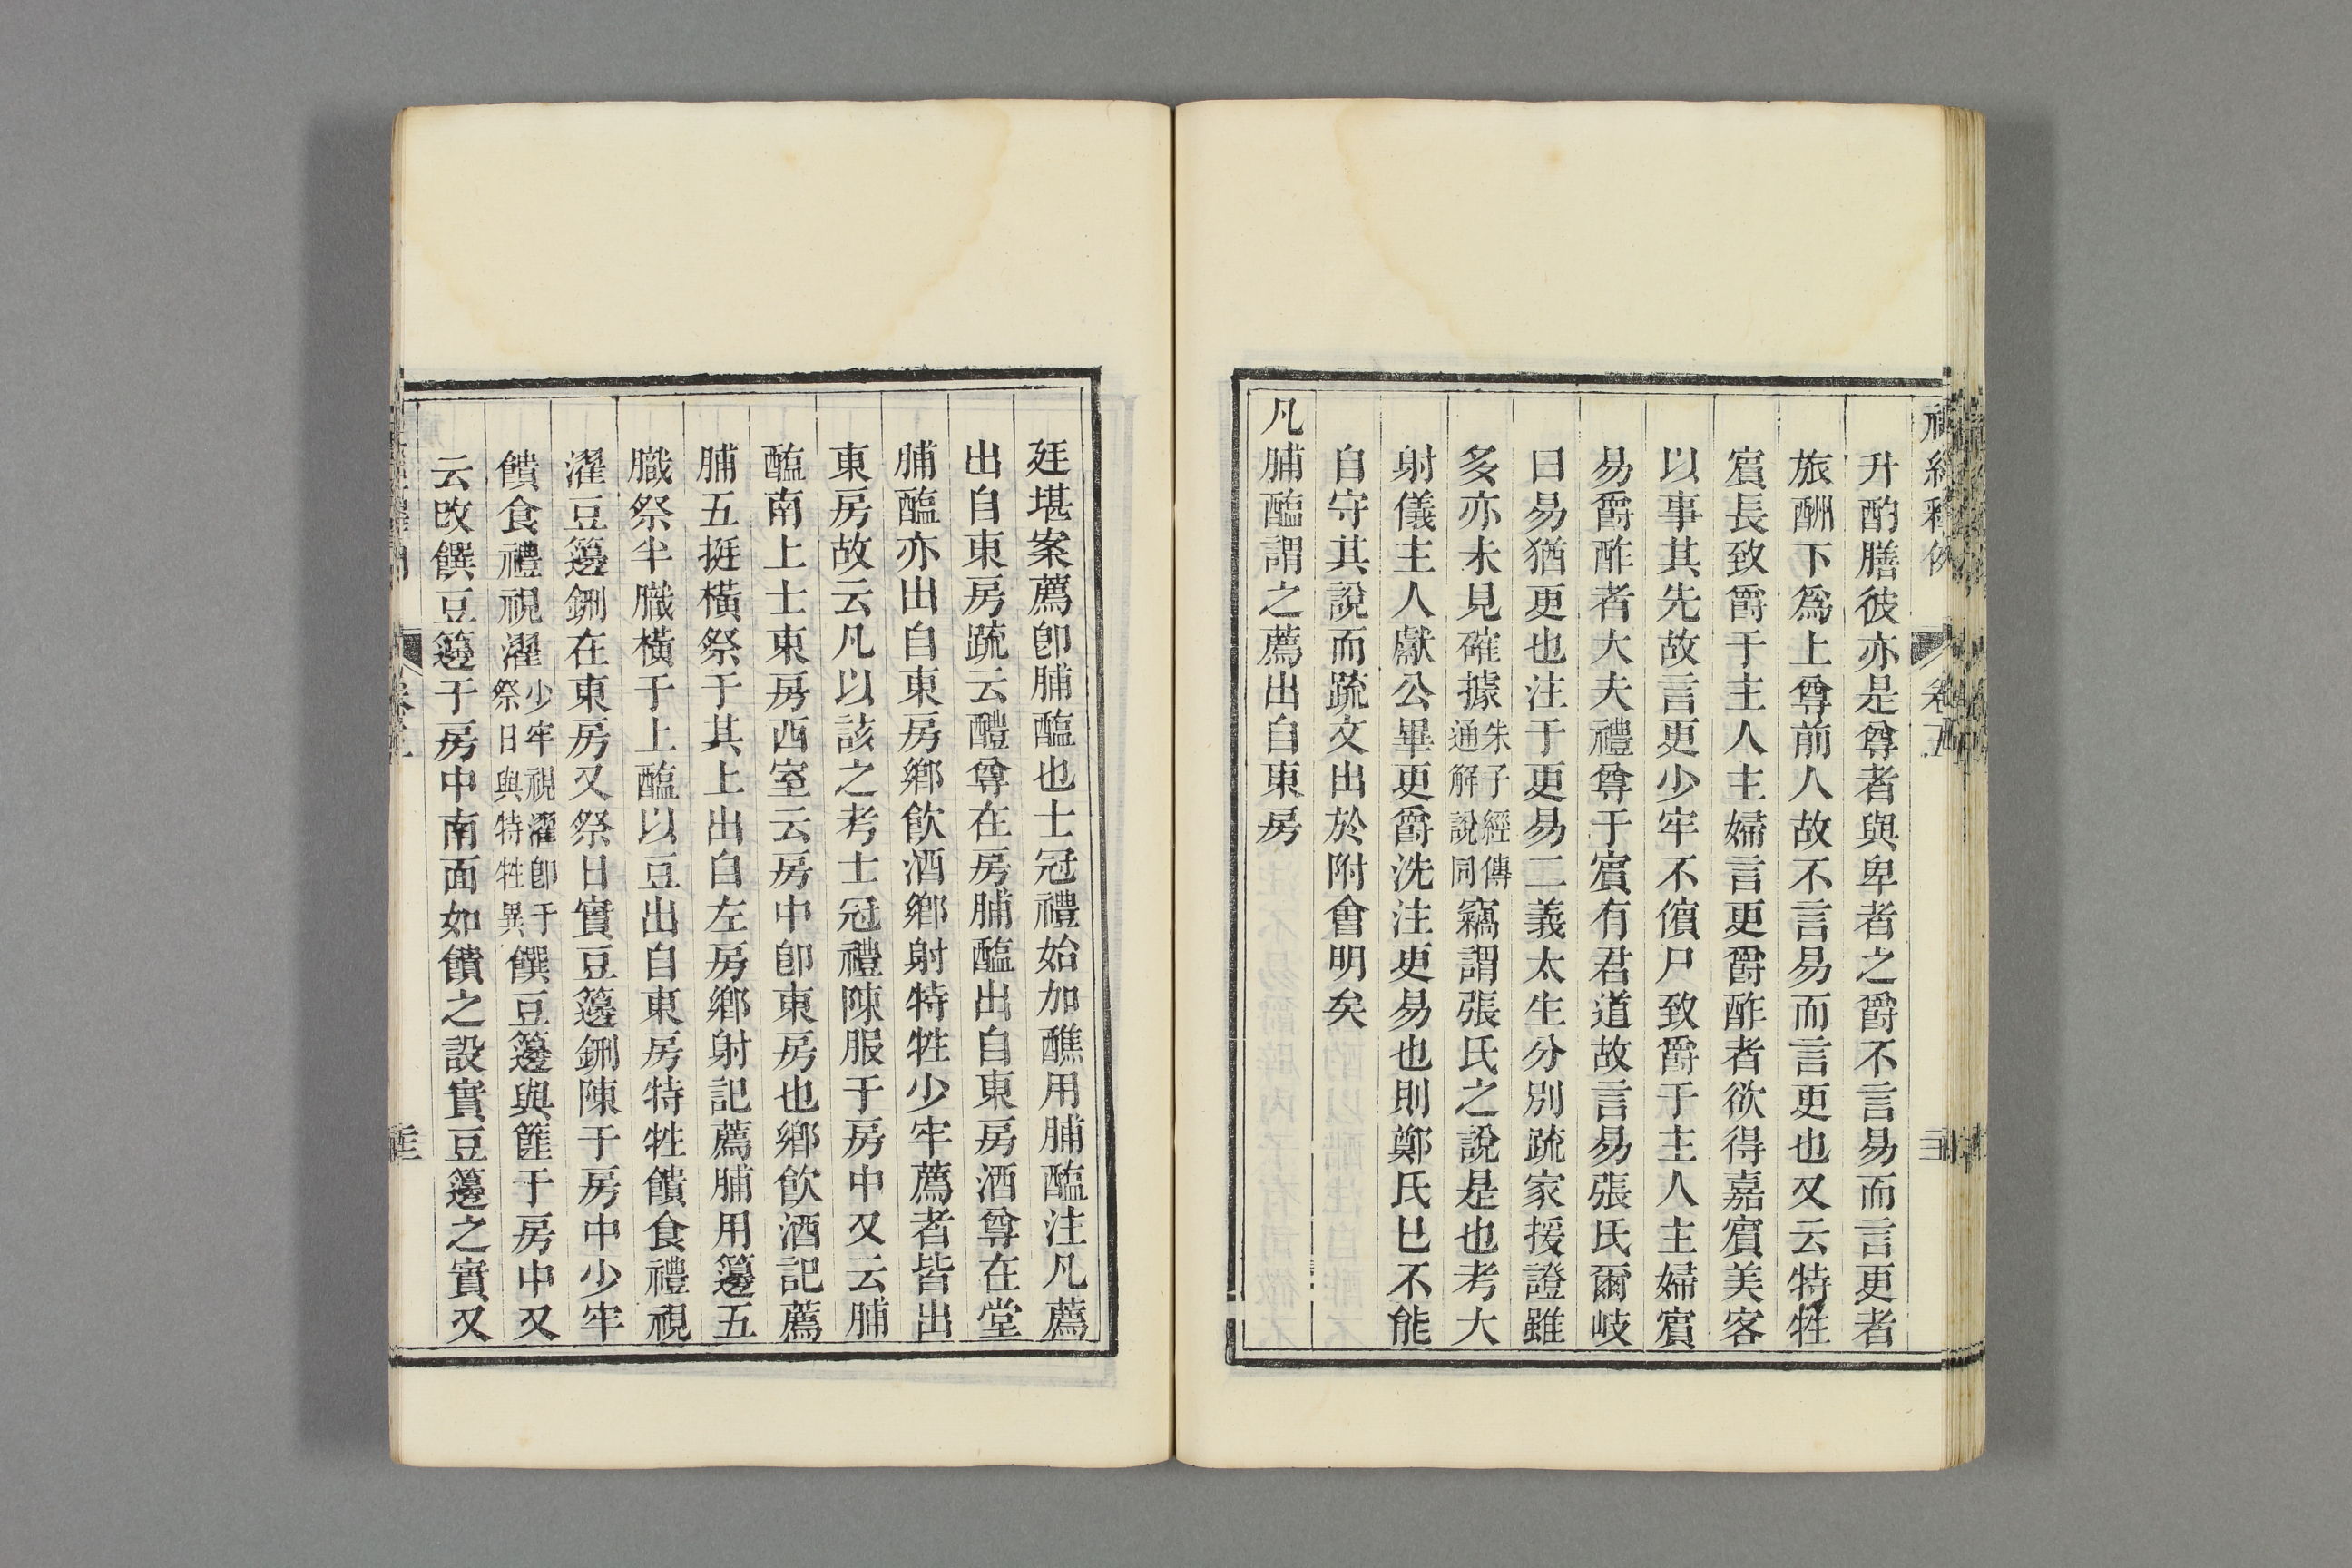 升酌膳彼亦是尊者與卑者之爵不言易而言更者
旅酬下爲上尊前人故不言易而言更也又云特牲
賔長致爵于主人主婦言更爵酢者欲得嘉賔美客
以事其先故言更少牢不儐尸致爵于主人主婦賔
易爵酢者大夫禮尊于賔有君道故言易張氏爾岐
曰易猶更也注于更易二義太生分別疏家援證雖
多亦未見確據朱子經傳通解說同竊謂張氏之說是也考大
射儀主人獻公畢更爵洗注更易也則鄭氏巳不能
自守其說而疏文出於附會明矣
凡脯醢謂之薦出自東房
廷堪案薦卽脯醢也士冠禮始加醮用脯醢注凡薦
出自東房疏云醴尊在房脯醢出自東房酒尊在堂
脯醢亦出自東房鄉飮酒鄉射特牲少牢薦者皆出
東房故云凡以該之考士冠禮陳服于房中又云脯
醢南上士東房西室云房中卽東房也鄉飮酒記薦
脯五挺橫祭于其上出自左房鄉射記薦脯用籩五
膱祭半膱橫于上醢以豆出自東房特牲饋食禮視
濯豆籩鉶在東房又祭日實豆籩鉶陳于房中少牢
饋食禮視濯少牢視濯卽于祭日與特牲異饌豆籩與篚于房中又
云改饌豆籩于房中南面如饋之設實豆籩之實又